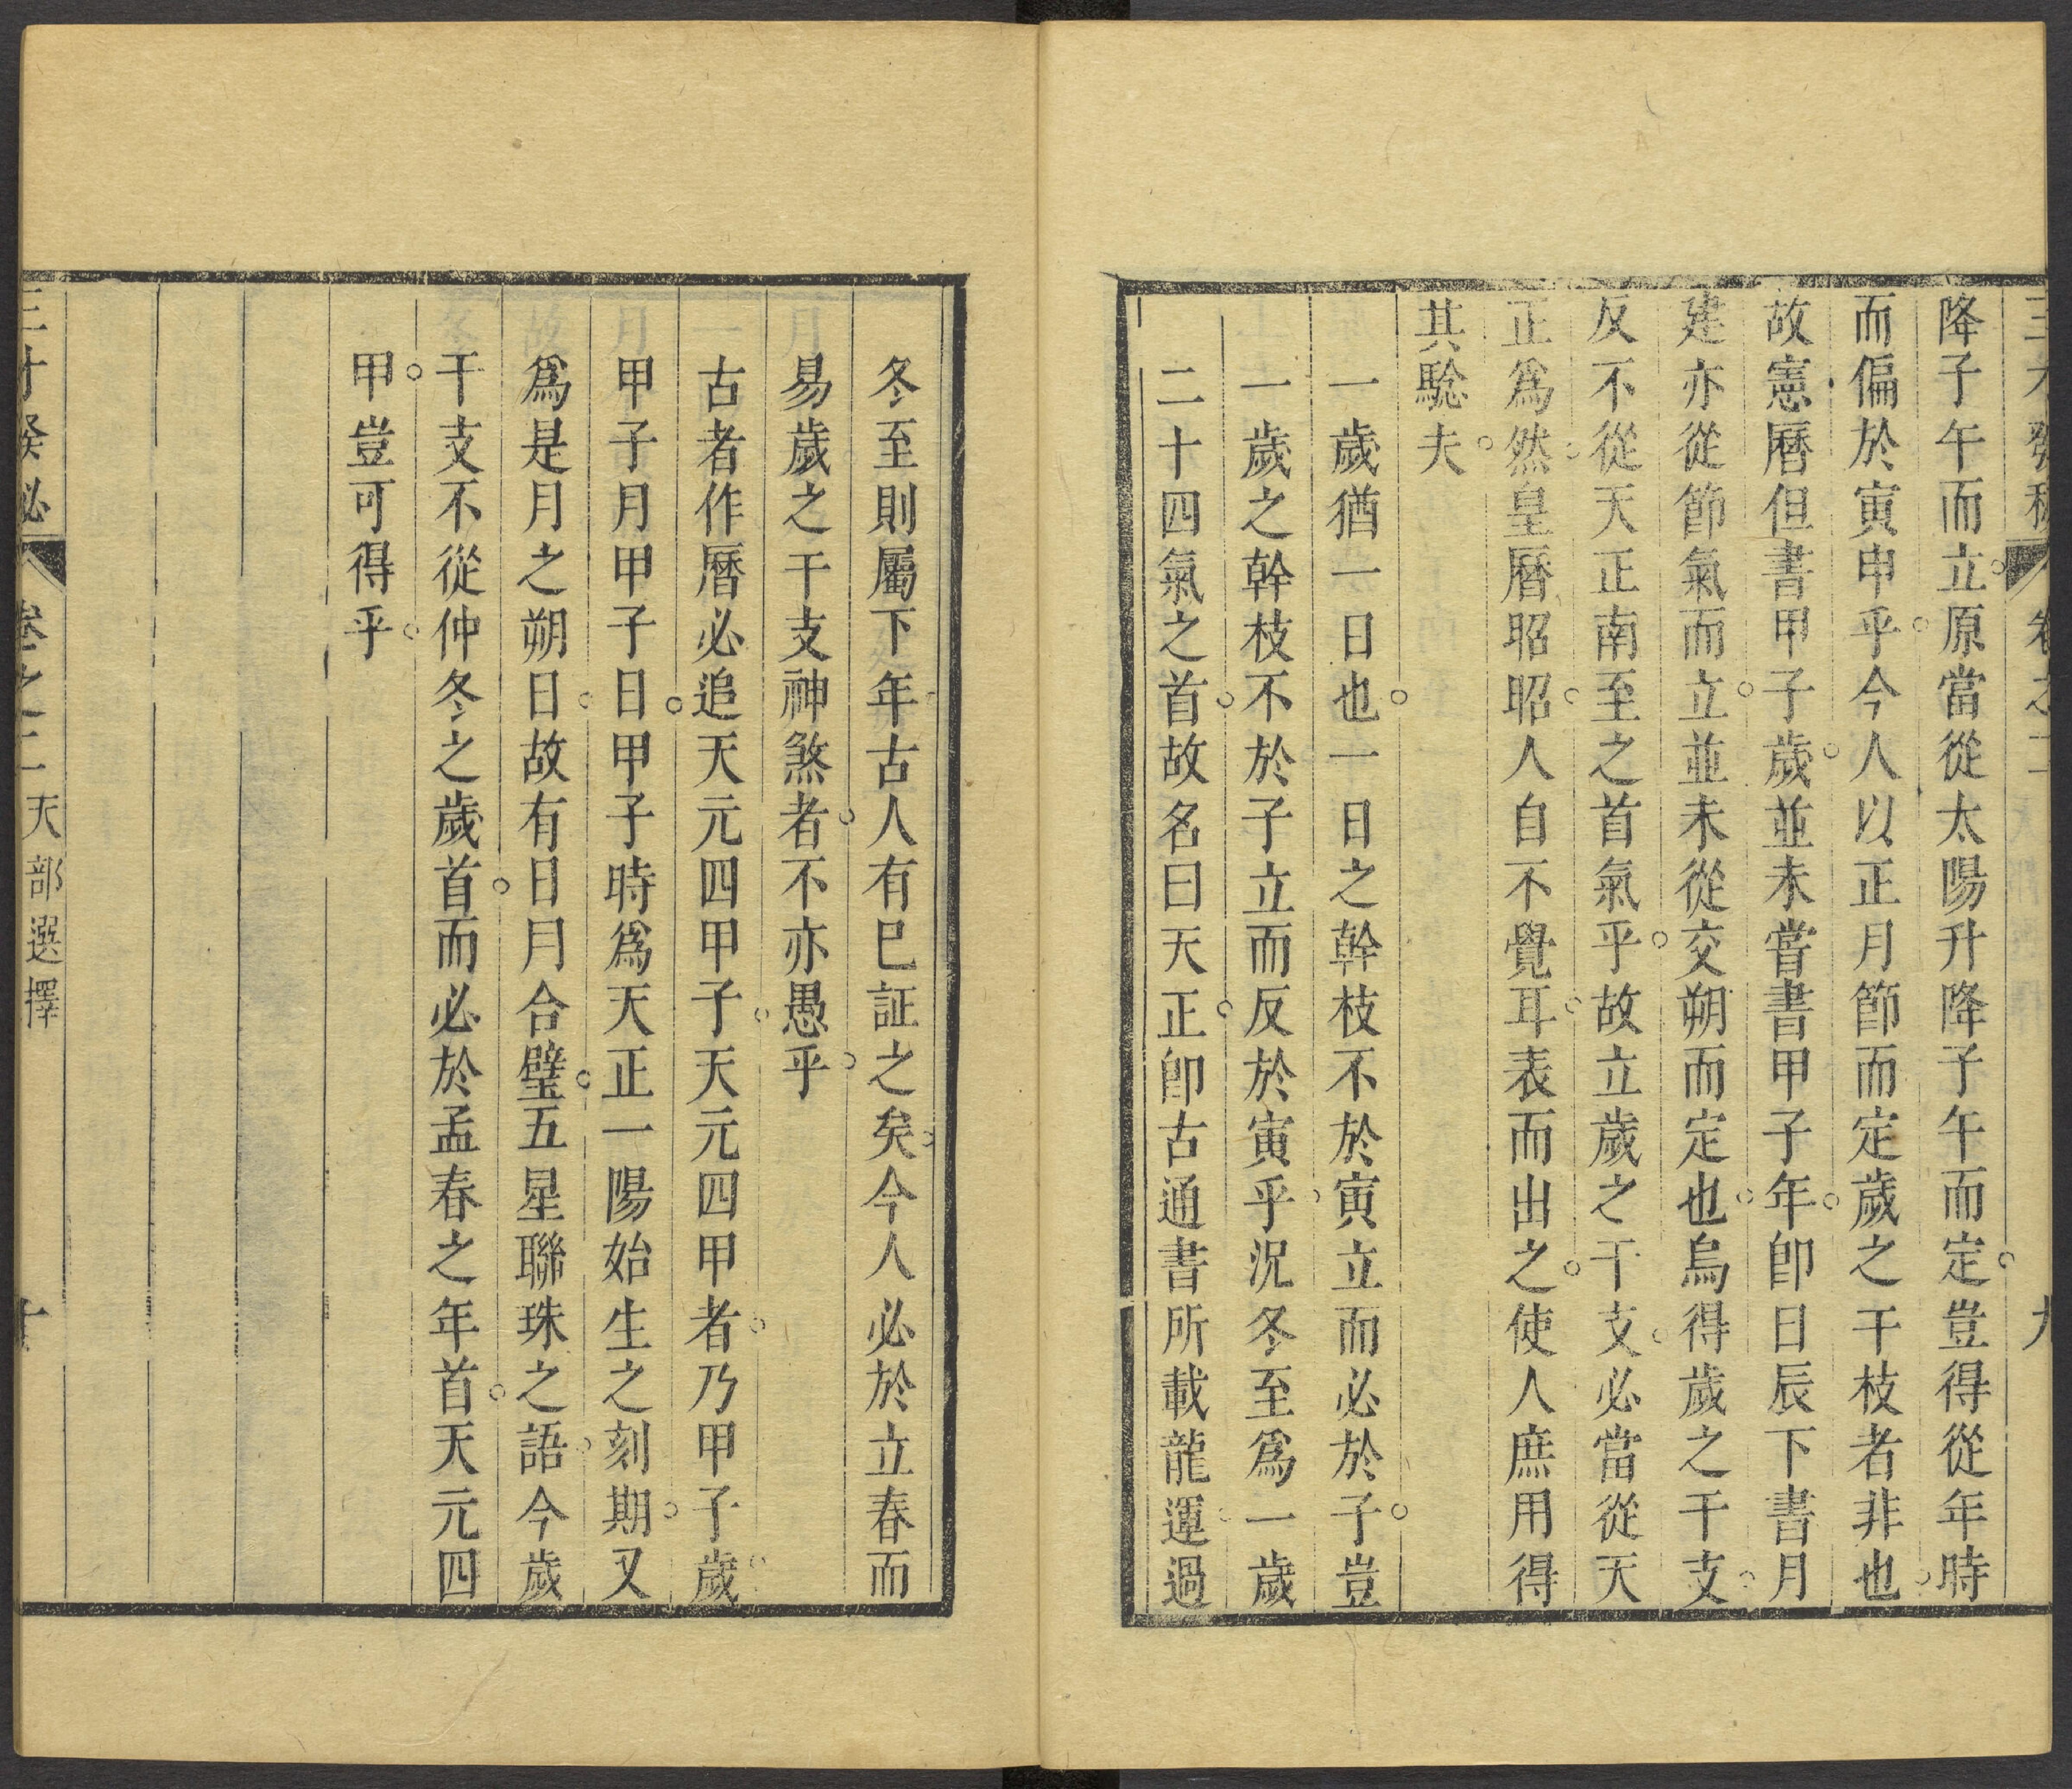 卷之二
九
降子午而立原當從太陽升降子午而定豈得從年時
而偏於寅申乎今人以正月節而定歲之干枝者非也
故憲曆但書甲子歲並未嘗書甲子年卽日辰下書月
建亦從節氣而立並未從交朔而定也烏得歲之干支
反不從天正南至之首氣乎故立歲之干支必當從天
正爲然皇曆昭昭人自不覺耳表而出之使人庶用得
其騐夫
一歲猶一日也一日之幹枝不於寅立而必於子豈
一歲之幹枝不於子立而反於寅乎況冬至爲一歲
二十四氣之首故名曰天正卽古通書所載龍運過
冬至則屬下年古人有巳証之矣今人必於立春而
易歲之干支神煞者不亦愚乎
古者作曆必追天元四甲子天元四甲者乃甲子歲
甲子月甲子日甲子時爲天正一陽始生之刻期又
爲是月之朔日故有日月合璧五星聯珠之語今歲
干支不從仲冬之歲首而必於孟春之年首天元四
甲豈可得乎
卷之二 天部選擇
十